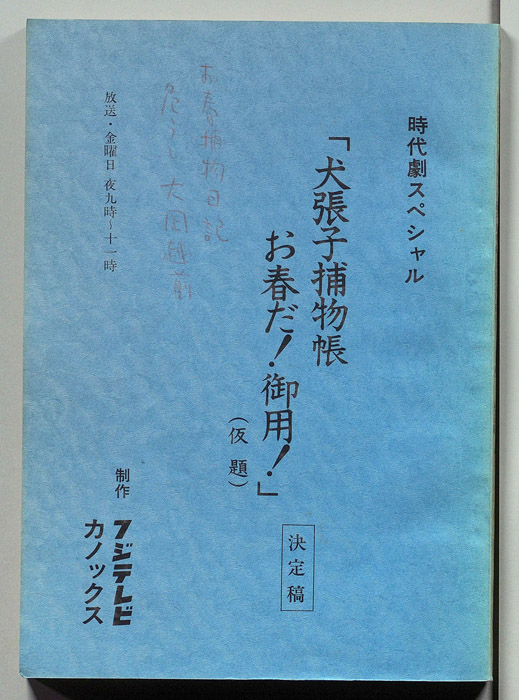 時代劇スペシャル
「犬張子捕物帳
お春だ!御用!」
(仮題)
決定稿
お春捕物日記
危うし大岡越前
放送・金曜日 夜九時〜十一時
制作
フジテレビ
カノックス